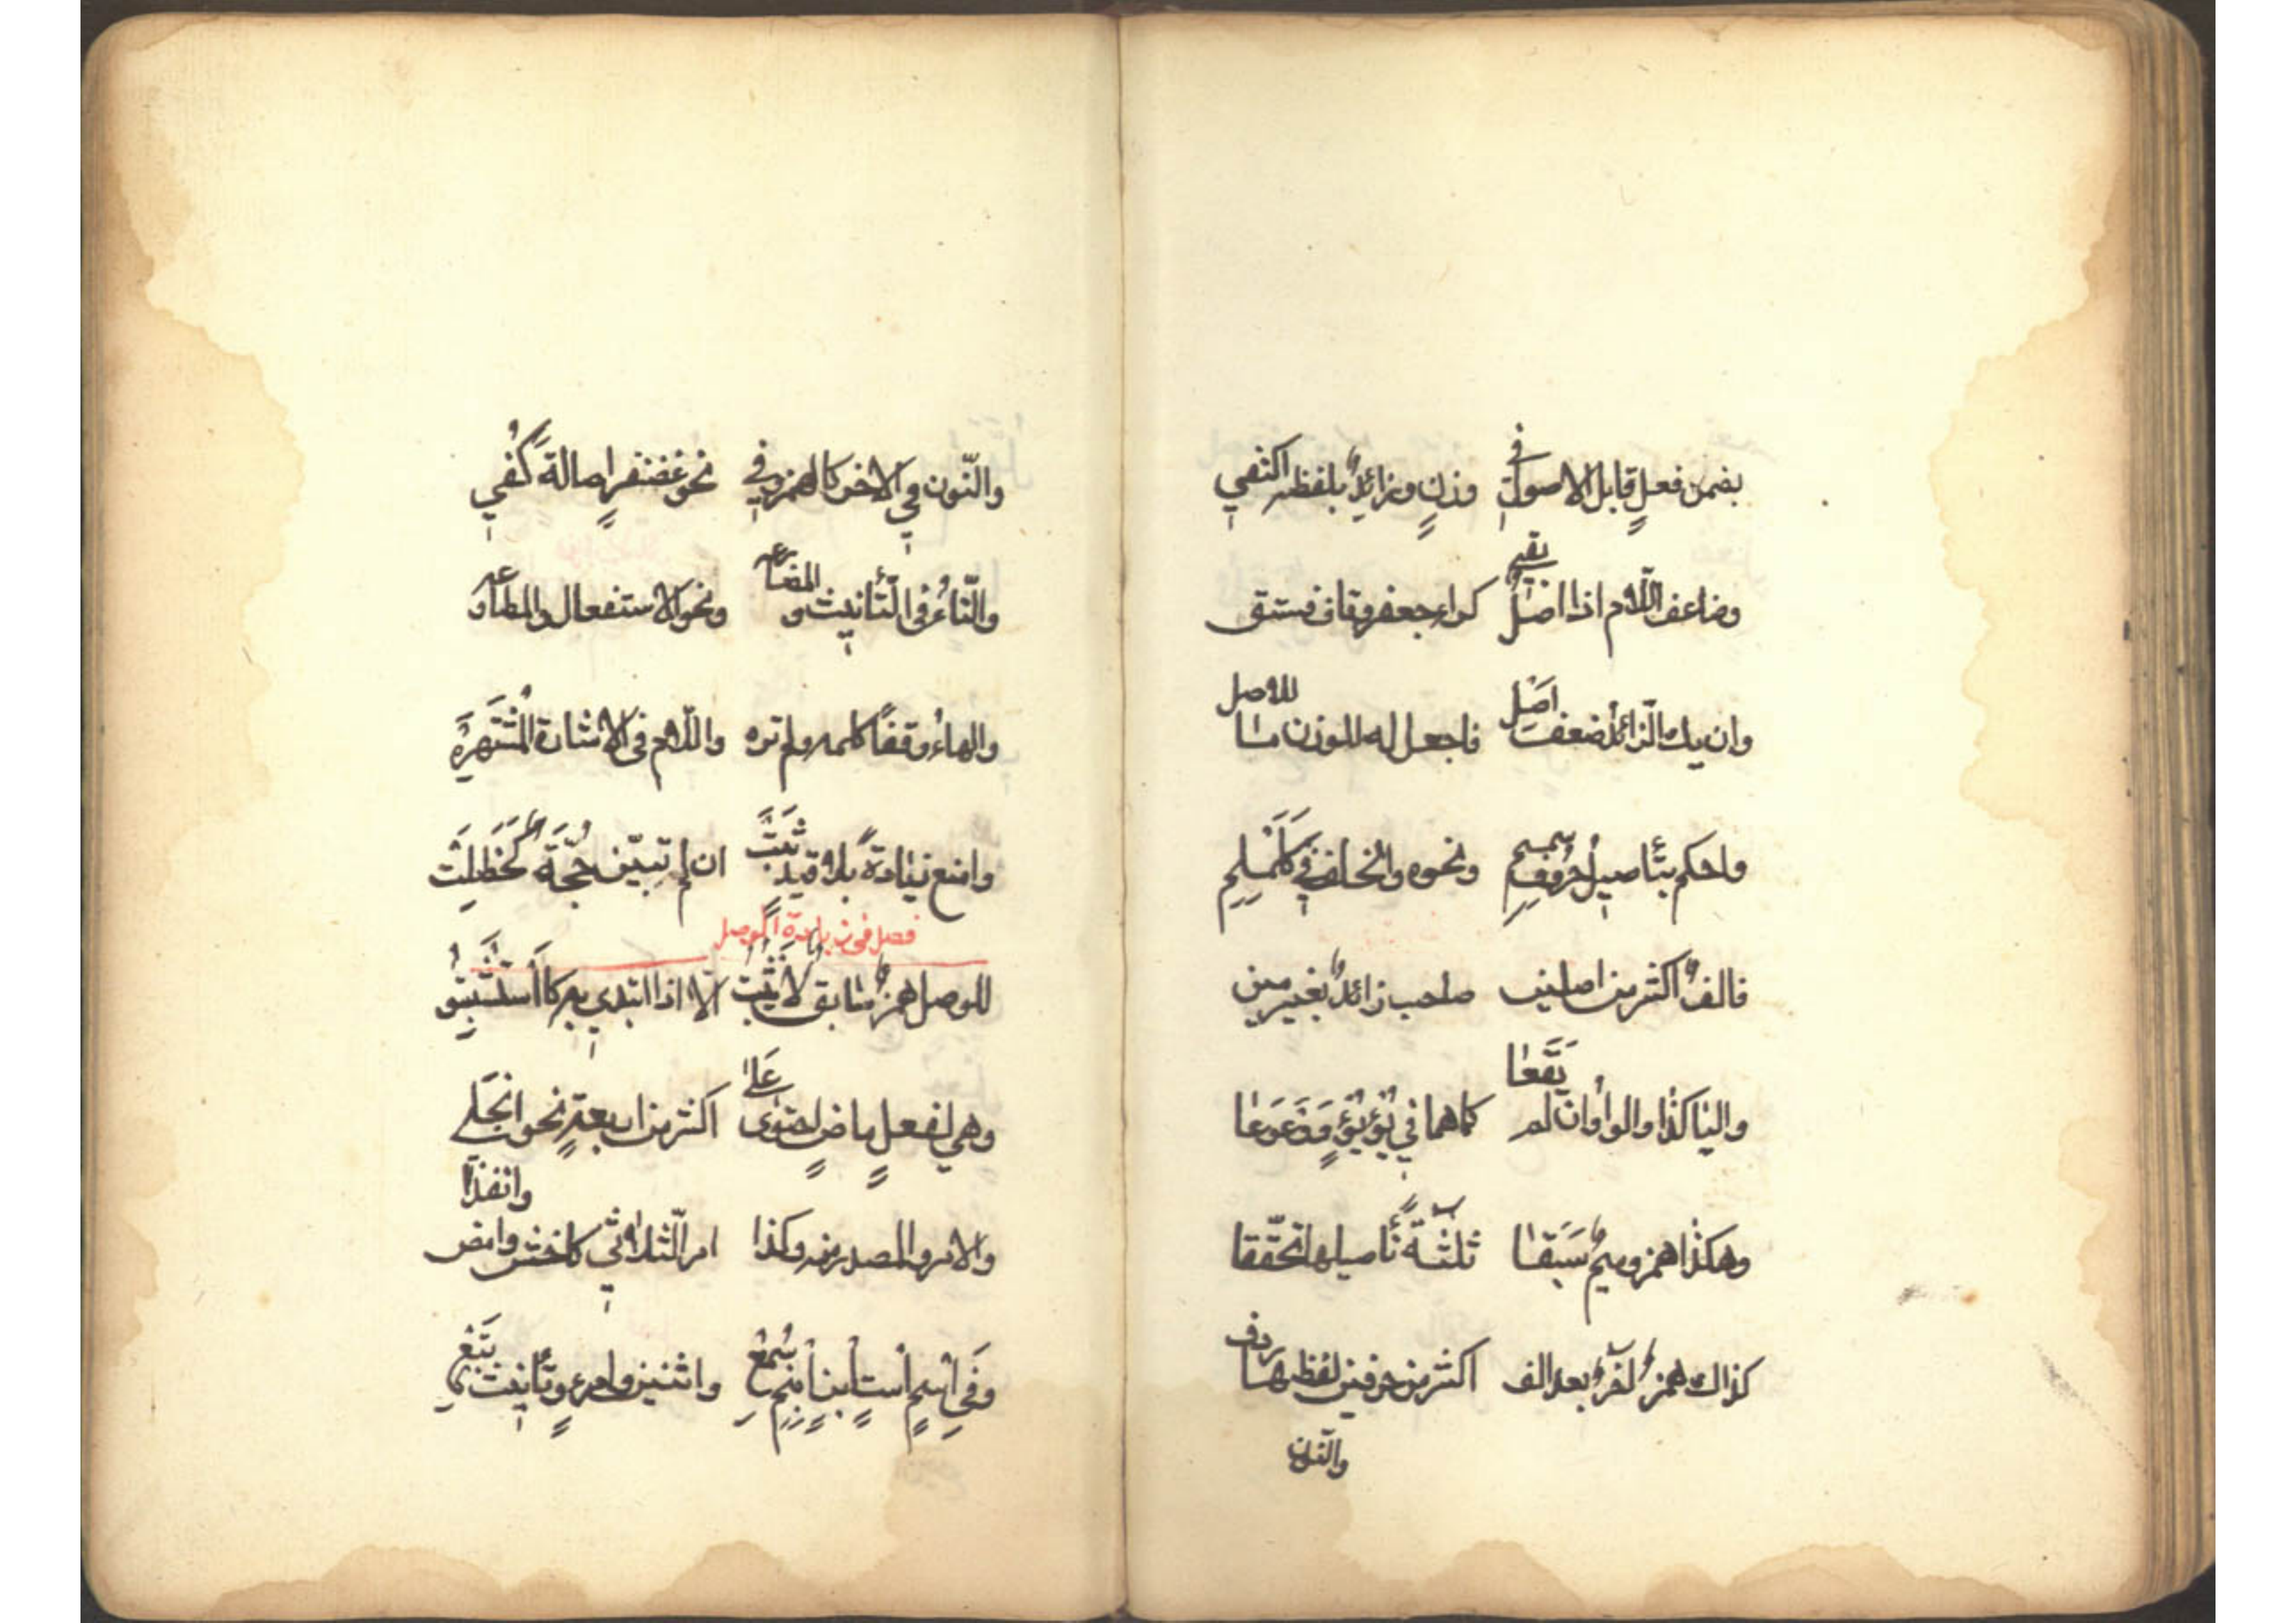 بضمن فعل قابل الاصول في وزن وزائد بلفظه اكتفي
وضاعف اللام اذا اصل بقي كراء جعفر وقاف فستق
وان يك الزائد ضعف اصل فاجعل له للوزن ما للاصل
واحكم بتأصيل حروف سمسم ونحوه والخلف في كلملم
فالف اكثر من اصلين صاحب زائد بغير مين
واليا كذا والواو ان لم يقعا كما هما في يؤيؤ ووعوعا
وهكذا همز وميم سبقا ثلثة تأصيلها تحققا
كذاك همز آخر بعد الف اكثر من حرفين لفظها ردف
والنون
والنون في الاخر كالهمز وفي نحو غضنفر اصالة كفي
والتاء في التأنيث والمضارعه ونحو الاستفعال والمطاوعه
والهاء وقفا كلمه ولم تره واللام في الاشارة المشتهره
وامنع زيادة بلا قيد ثبت ان لم تبين حجة كحظلت
فصل في زيادة الوصل
للوصل همز سابق لا يثبت الا اذا ابتدي به كاستثبتوا
وهي لفعل ماض احتوى على اكثر من اربعة نحو انجلى
والامر والمصدر منه وكذا امر الثلاثي كاخش وامض وانفذا
وفي اسم است ابن ابنم سمع واثنين وامرء وتأنيث تبع